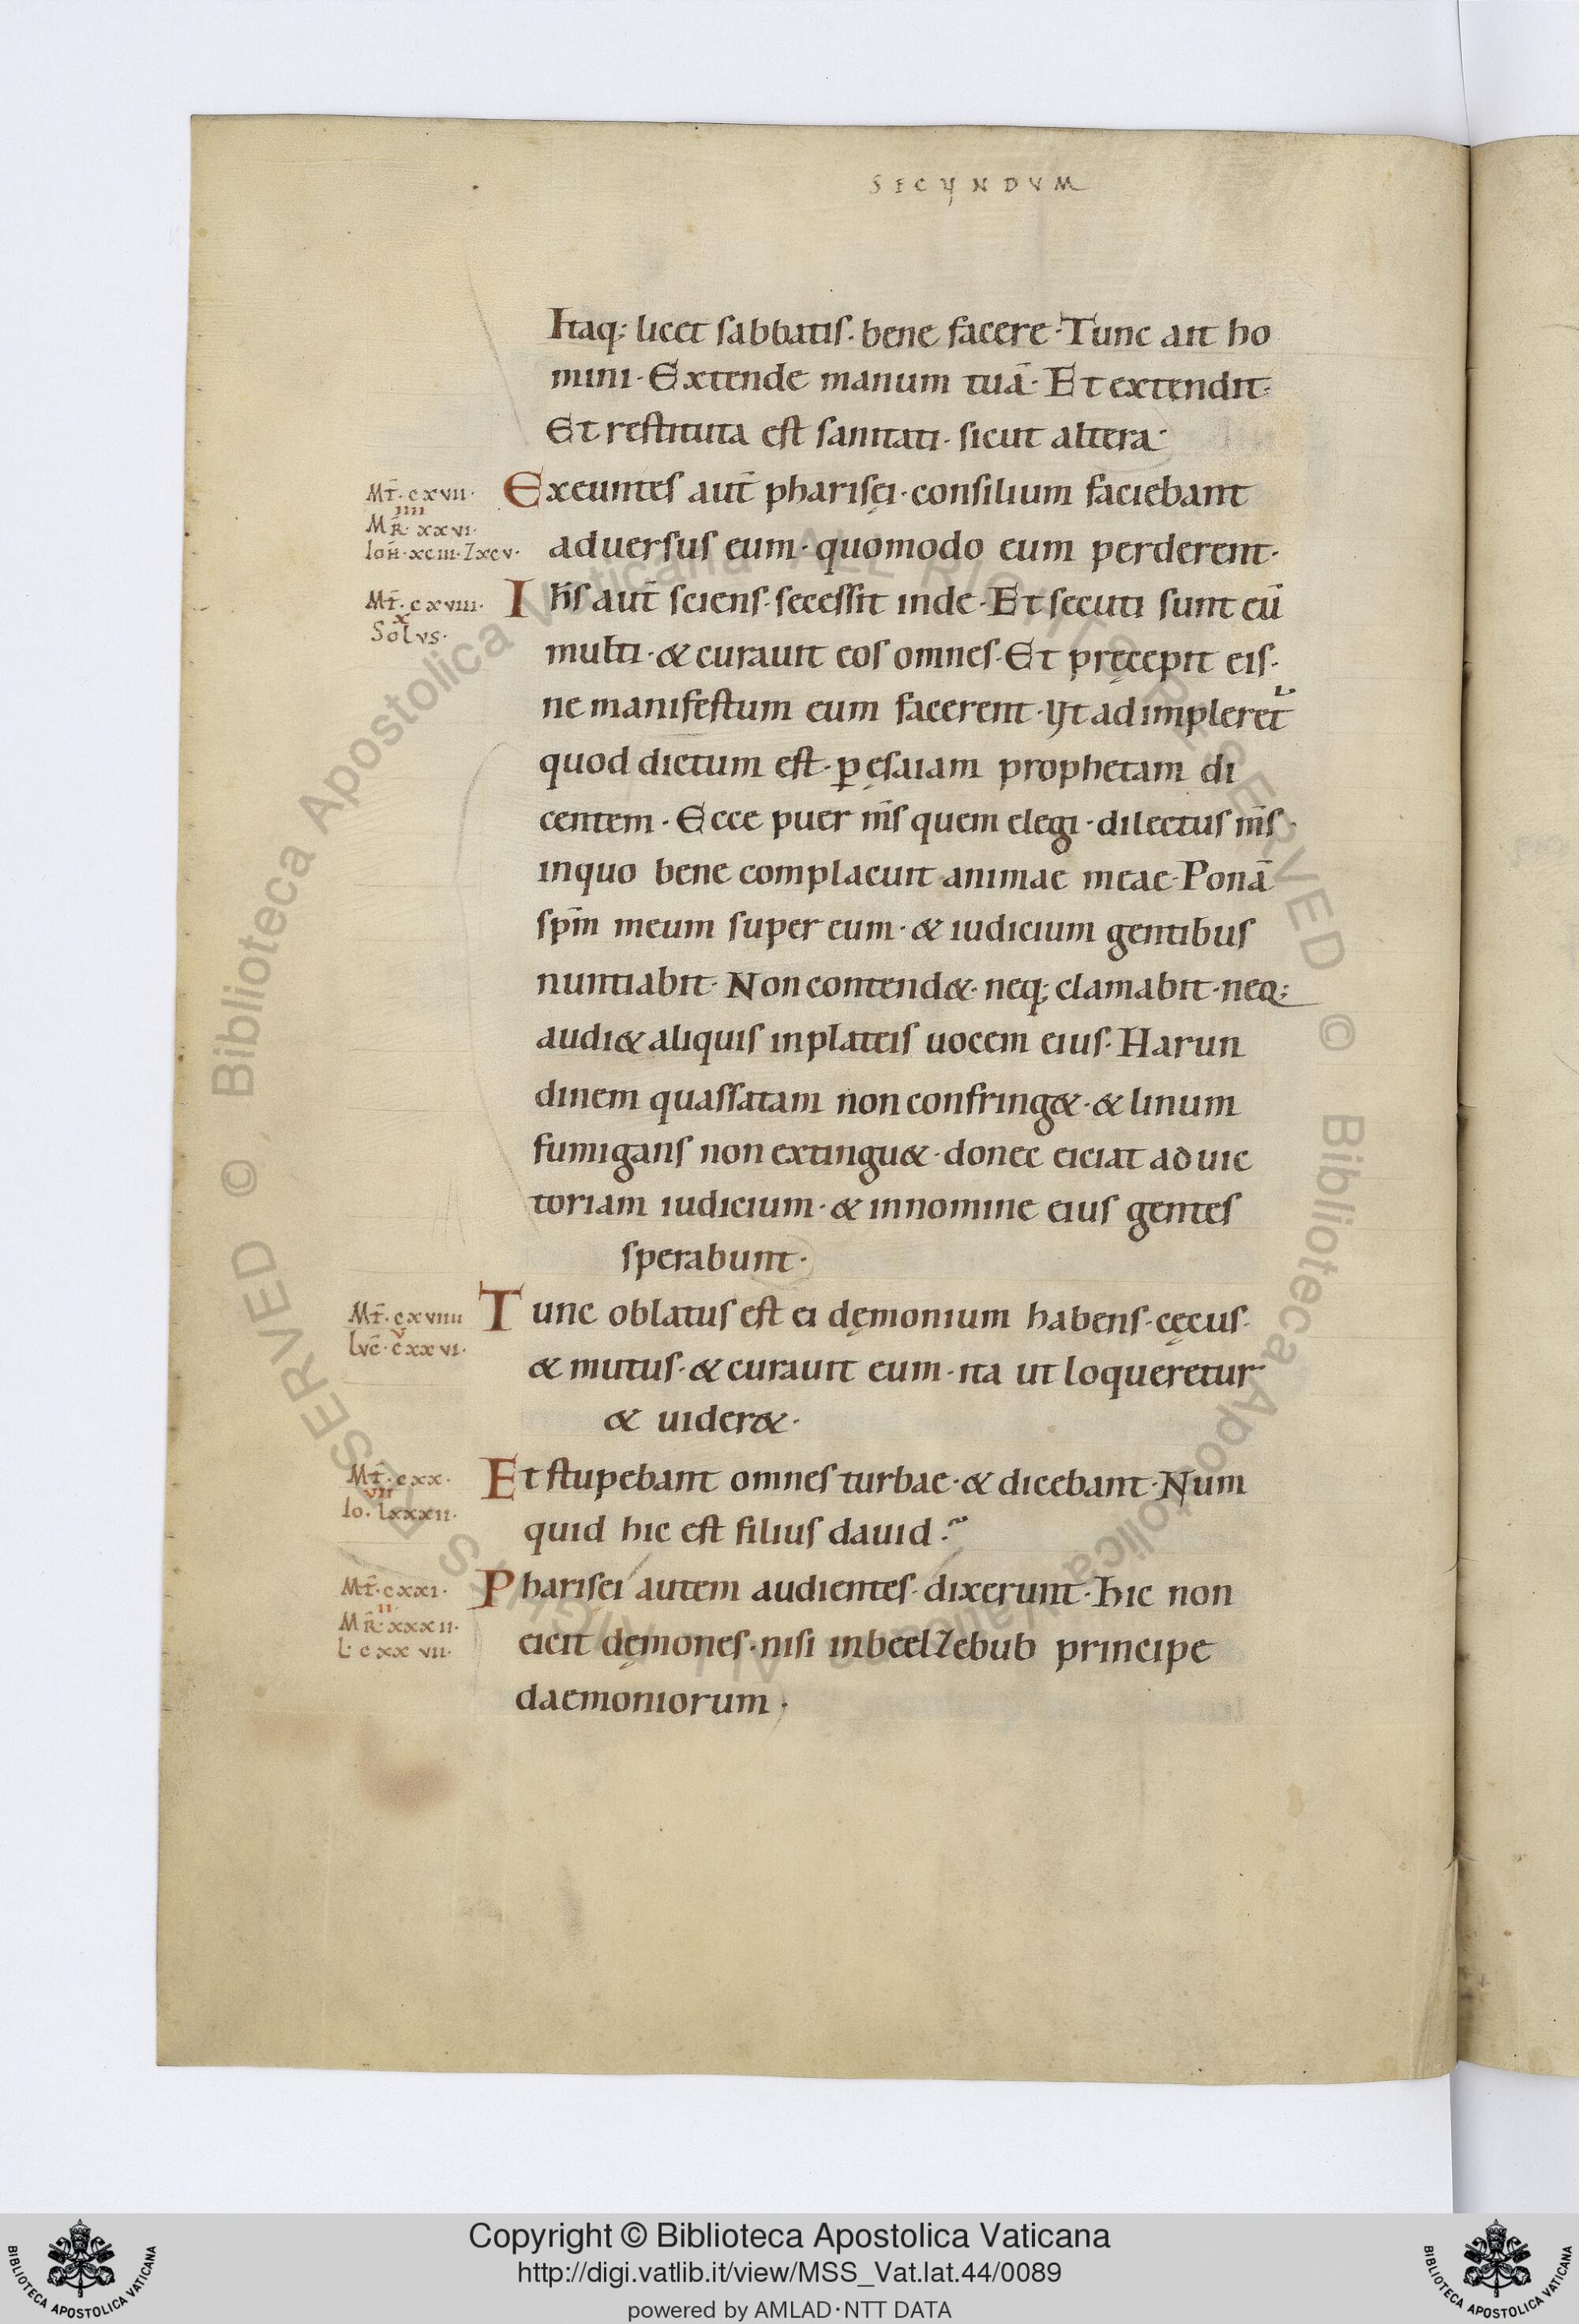 SECUNDVM
Itaq; licet sabbatis· bene facere· Tunc ait ho
mini· Extende manum tuā· Et extendit·
Et restituta est sanitati· sicut altera·
Mt̄· cxvii·
iiii
MR̄· xxvi·
Ioh̄· xciii· 7xcv·
Exeuntes aut̄ pharisęi· consilium faciebant
aduersus eum· quomodo eum perderent·
Mt̄· cxviii·
x
Solvs·
Ih̄s aut̄ sciens· secessit inde· Et secuti sunt eū
multi· & curauit eos omnes· Et pręcepit eis·
ne manifestum eum facerent· Ut adimpleret̄
quod dictum est· ꝑ ęsaiam prophetam di
centem· Ecce puer m̄s quem elegi· dilectus m̄s·
inquo bene complacuit animae meae· Ponā
sp̄m meum super eum· & iudicium gentibus
nuntiabit· Non contend&· neq; clamabit· neq;
audi& aliquis inplateis uocem eius· Harun
dinem quassatam non confring&· & linum
fumigans non extingu&· donec eiciat ad uic
toriam iudicium· & innomine eius gentes
sperabunt·
Mt̄· cxviiii
v
Lvc̄· cxxvi·
Tunc oblatus est ei dęmonium habens· cęcus·
& mutus· & curauit eum· ita ut loqueretur
& uider&·
Mt̄· cxx·
vii
Io· lxxxii·
Et stupebant omnes turbae· & dicebant· Num
quid hic est filius dauid·
Mt̄· cxxi·
ii
MR̄· xxxii·
L· cxxvii·
Pharisei autem audientes· dixerunt· hic non
eicit dęmones· nisi inbeelzebub principe
daemoniorum·
© Biblioteca Apostolica Vaticana ALL RIGHTS RESERVED
© Biblioteca Apostolica Vaticana ALL RIGHTS RESERVED
Copyright © Biblioteca Apostolica Vaticana
http://digi.vatlib.it/view/MSS_Vat.lat.44/0089
powered by AMLAD·NTT DATA
BIBLIOTECA APOSTOLICA VATICANA
BIBLIOTECA APOSTOLICA VATICANA